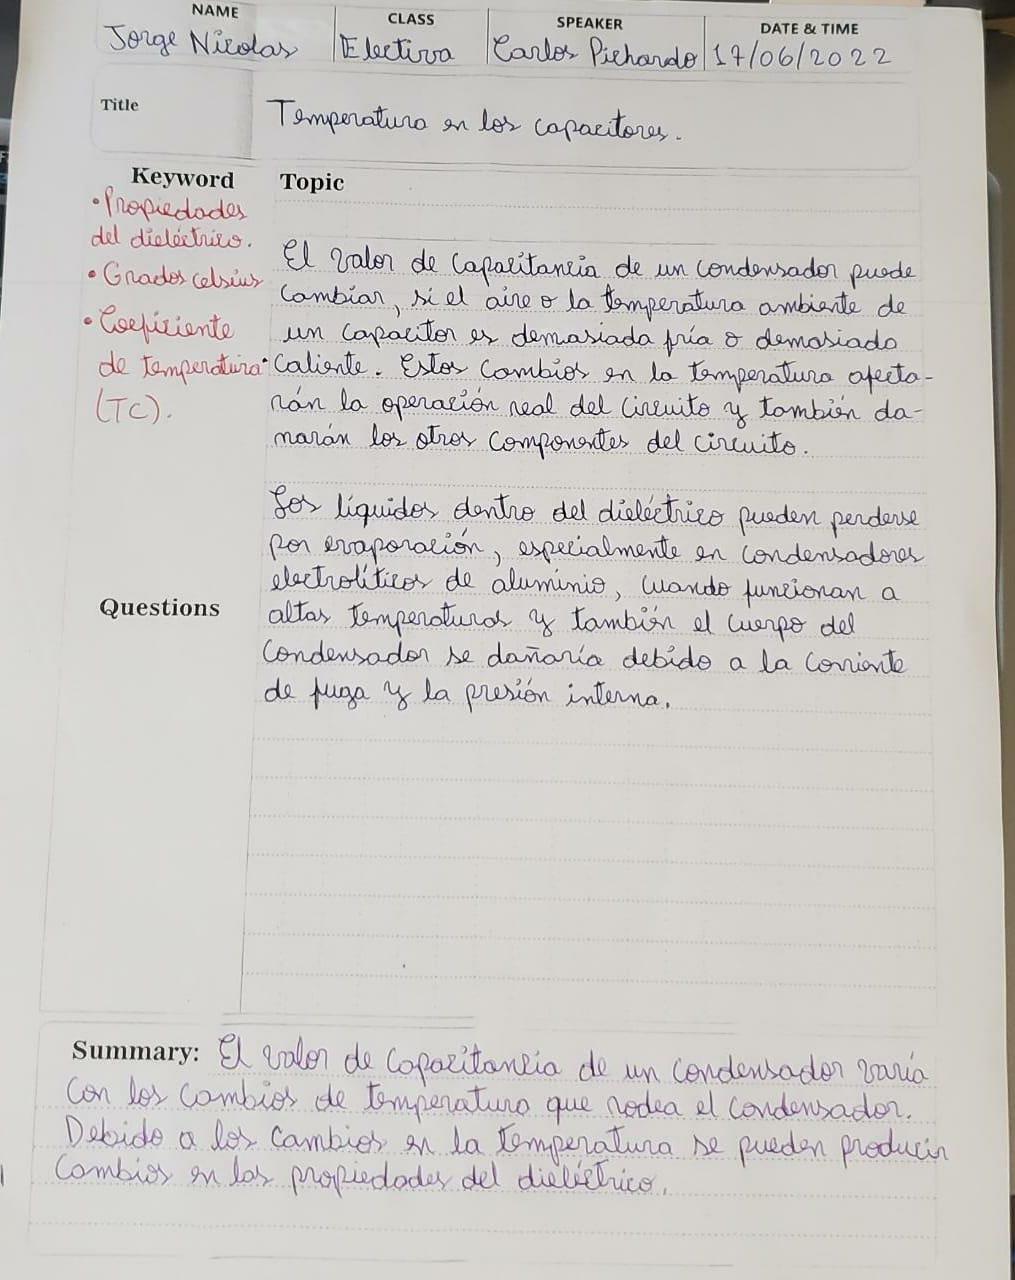 NAME CLASS SPEAKER DATE & TIME
Jorge Nicolas Electiva Carlos Pichardo 17/06/2022
Title
Temperatura en los capacitores.
Keyword
• Propiedades
del dieléctrico.
• Grados celsius
• Coeficiente
de temperatura
(TC).
Topic
El valor de capacitancia de un condensador puede
cambiar, si el aire o la temperatura ambiente de
un capacitor es demasiada fría o demasiado
caliente. Estos cambios en la temperatura afecta-
rán la operación real del circuito y también da-
narán los otros componentes del circuito.
Los líquidos dentro del dieléctrico pueden perderse
por evaporación, especialmente en condensadores
electrolíticos de aluminio, cuando funcionan a
altas temperaturas y también el cuerpo del
condensador se dañaría debido a la corriente
de fuga y la presión interna.
Questions
Summary: El valor de capacitancia de un condensador varía
con los cambios de temperatura que rodea el condensador.
Debido a los cambios en la temperatura se pueden producir
cambios en las propiedades del dieléctrico.